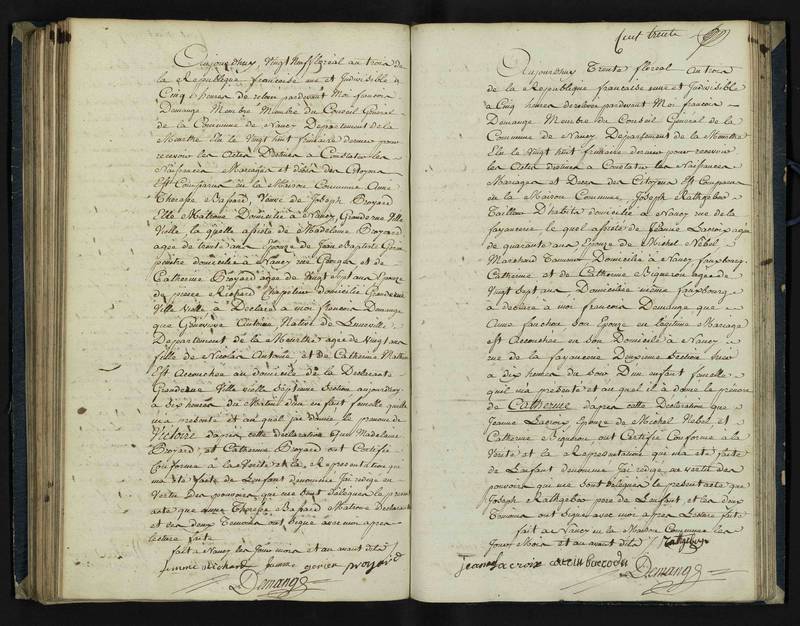 Aujourdhuy Vingt Neuf floréal an trois de
la République francaise une et Indivisible à
Cinq heures de relevé pardevant Moi francois
Demange Membre du Conseil Général
de la Commune de Nancy Département de la
Meurthe Elu le Vingt huit frimaire dernier pour
recevoir les Actes Destinés à Constater les
Naissances Mariages et décès des Citoyens
Est Comparue en la Maison Commune Anne
Therese Bapard, Veuve de Joseph Broyard
Elle Matrone Domiciliée à Nancy Grande rue Ville
Vielle, la quelle assistée de Madelaine Broyard
agée de trente ans Epouse de Jean Baptiste
peintre domiciliée à Nancy rue et de
Catherine Broyard agée de Vingt Sept ans Epouse
de pierre Richard Chapelier domiciliée Grande rue
Ville Vielle à Déclaré à moi francois Demange
que Génevieve Antoine Native de Luneville
Departement de la Meurthe agée de Vingt ans
fille de Nicolas Antoine, et de Catherine Mathieu
Est Accouchée au domicile de la Déclarante
Grande rue Ville vielle Septieme Section aujourdhuy
à dix heures du Matin d'un enfant femelle quelle
m'a présenté et au quel j'ai donné le prenom de
Victoire d'après cette déclaration que Madelaine
Broyard, et Catherine Broyard ont Certifié
Conforme à la Vérité et la Représentation qui
m'a été faite de L'enfant dénommé J'ai rédigé en
Vertu des pouvoirs qui me sont délégués le présent
acte que Anne Therese Bapard Matrone Déclarante
et les deux Témoins ont Signé avec moi après
lecture faite
fait à Nancy les Jour mois et an avant dits
femme richard femme broyard
Demange
Cent trente
Aujourdhuy Trente floréal An trois
de la République francaise une et Indivisible
à Cinq heures de relevé pardevant Moi francois
Demange Membre du Conseil Général de la
Commune de Nancy Département de la Meurthe
Elu le Vingt huit frimaire dernier pour recevoir
les Actes destinés à Constater les Naissances
Mariages et Décès des Citoyens Est Comparu
en la Maison Commune Joseph Rathgebre
Tailleur D'habits domicilié à Nancy rue de la
fayancerie le quel assisté de Jeanne Lacroix agée
de quarante ans Epouse de Michel Nebel
Marchand Domicilié à Nancy fauxbourg
Catherine et de Catherine Biqueron agée de
Vingt Sept ans Domiciliée même fauxbourg
à déclaré à moi francois Demange que
Anne son Epouse en légitime Mariage
est Accouchée en son Domicile à Nancy
rue de la fayancerie Deuxieme Section hier
à dix heures du Soir D'un enfant femelle
quil m'a présenté et au quel il à donné le prénom
de Catherine d'après cette Déclaration que
Jeanne Lacroix Epouse de Michel Nebel, et
Catherine Biqueron, ont Certifié Conforme à la
Vérité et la Représentation qui m'a été faite
de L'enfant dénommé J'ai rédigé en vertu des
pouvoirs qui me sont délégués le présent acte que
Joseph Rathgebre père de L'enfant et les deux
Témoins ont Signé avec moi après Lecture faite
fait à Nancy en la Maison Commune les
Jour Mois et an avant dits Rathgebre
Jeanne Lacroix
Demange